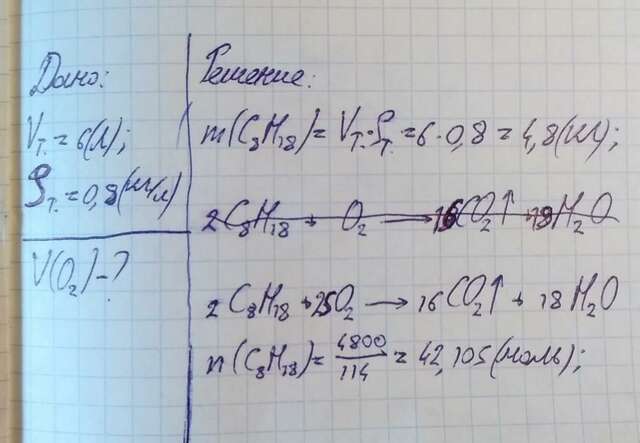 Дано:
Vт. = 6(л);
ρт. = 0,8(кг/л)
V(O₂) - ?
Решение:
m(C₈H₁₈) = Vт.·ρт. = 6·0,8 = 4,8(кг);
2C₈H₁₈ + O₂ → 16CO₂↑ + 18H₂O
2C₈H₁₈ + 25O₂ → 16CO₂↑ + 18H₂O
n(C₈H₁₈) = 4800/114 = 42,105(моль);